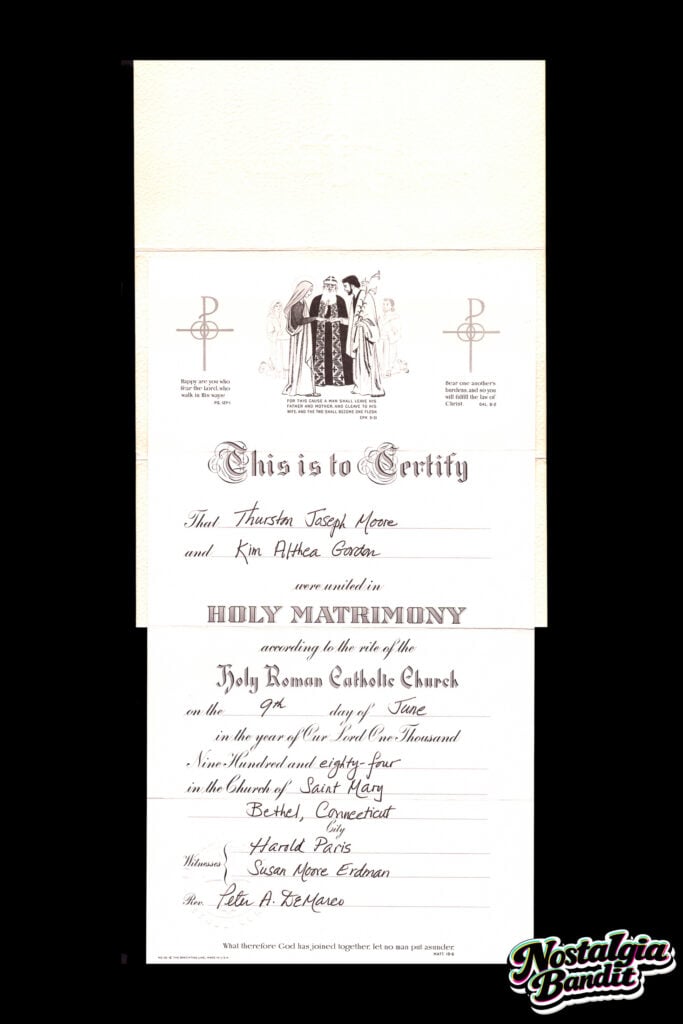 Happy are you who
fear the Lord, who
walk in His ways
PS. 127:1
FOR THIS CAUSE A MAN SHALL LEAVE HIS
FATHER AND MOTHER, AND CLEAVE TO HIS
WIFE, AND THE TWO SHALL BECOME ONE FLESH
EPH. 5:31
Bear one another's
burdens, and so you
will fulfill the law of
Christ. GAL. 6:2
This is to Certify
That Thurston Joseph Moore
and Kim Althea Gordon
were united in
HOLY MATRIMONY
according to the rite of the
Holy Roman Catholic Church
on the 9th day of June
in the year of Our Lord One Thousand
Nine Hundred and eighty-four
in the Church of Saint Mary
Bethel, Connecticut
City
Witnesses
Harold Paris
Susan Moore Erdman
Rev. Peter A. DeMarco
What therefore God has joined together, let no man put asunder.
MATT. 19:6
MADE IN U.S.A.
Nostalgia
Bandit